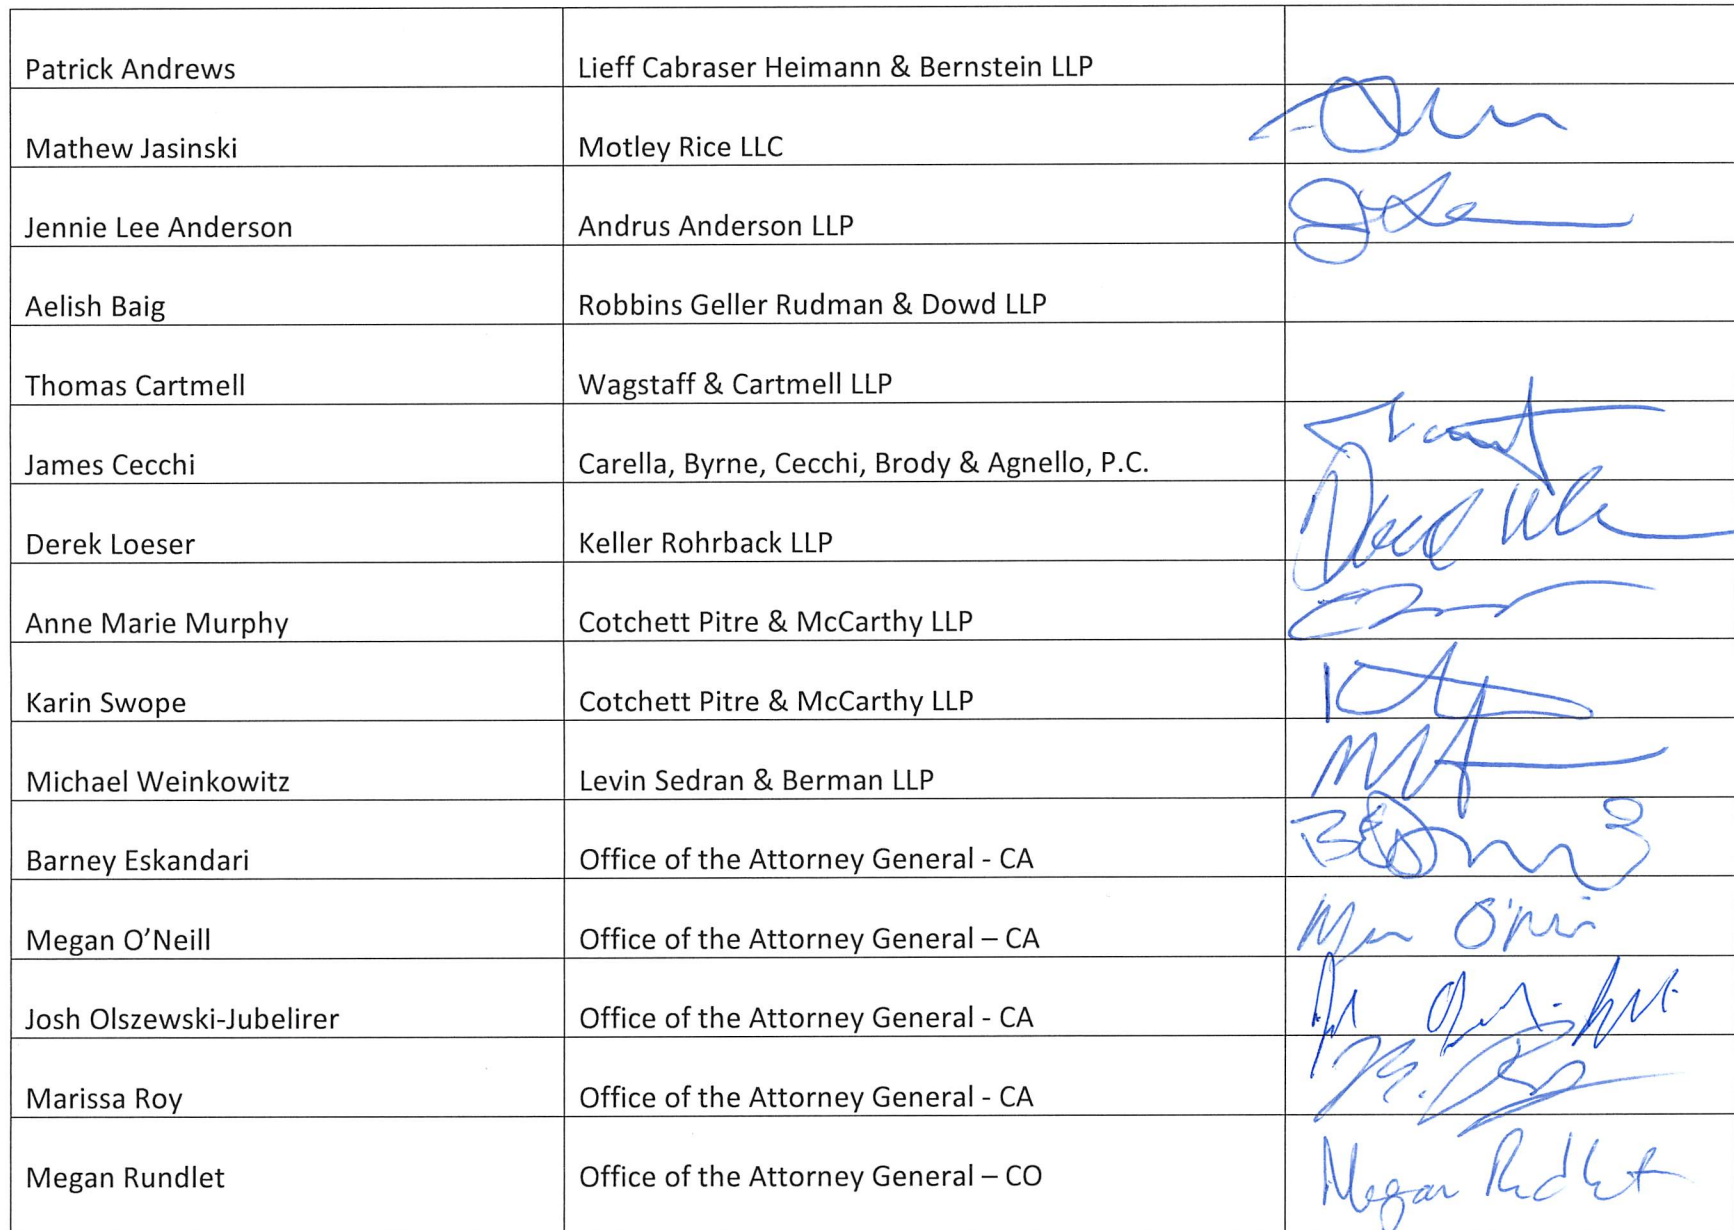 Patrick Andrews Lieff Cabraser Heimann & Bernstein LLP
Mathew Jasinski Motley Rice LLC
Jennie Lee Anderson Andrus Anderson LLP
Aelish Baig Robbins Geller Rudman & Dowd LLP
Thomas Cartmell Wagstaff & Cartmell LLP
James Cecchi Carella, Byrne, Cecchi, Brody & Agnello, P.C.
Derek Loeser Keller Rohrback LLP
Anne Marie Murphy Cotchett Pitre & McCarthy LLP
Karin Swope Cotchett Pitre & McCarthy LLP
Michael Weinkowitz Levin Sedran & Berman LLP
Barney Eskandari Office of the Attorney General - CA
Megan O’Neill Office of the Attorney General – CA
Josh Olszewski-Jubelirer Office of the Attorney General - CA
Marissa Roy Office of the Attorney General - CA
Megan Rundlet Office of the Attorney General – CO Megan Rundlet